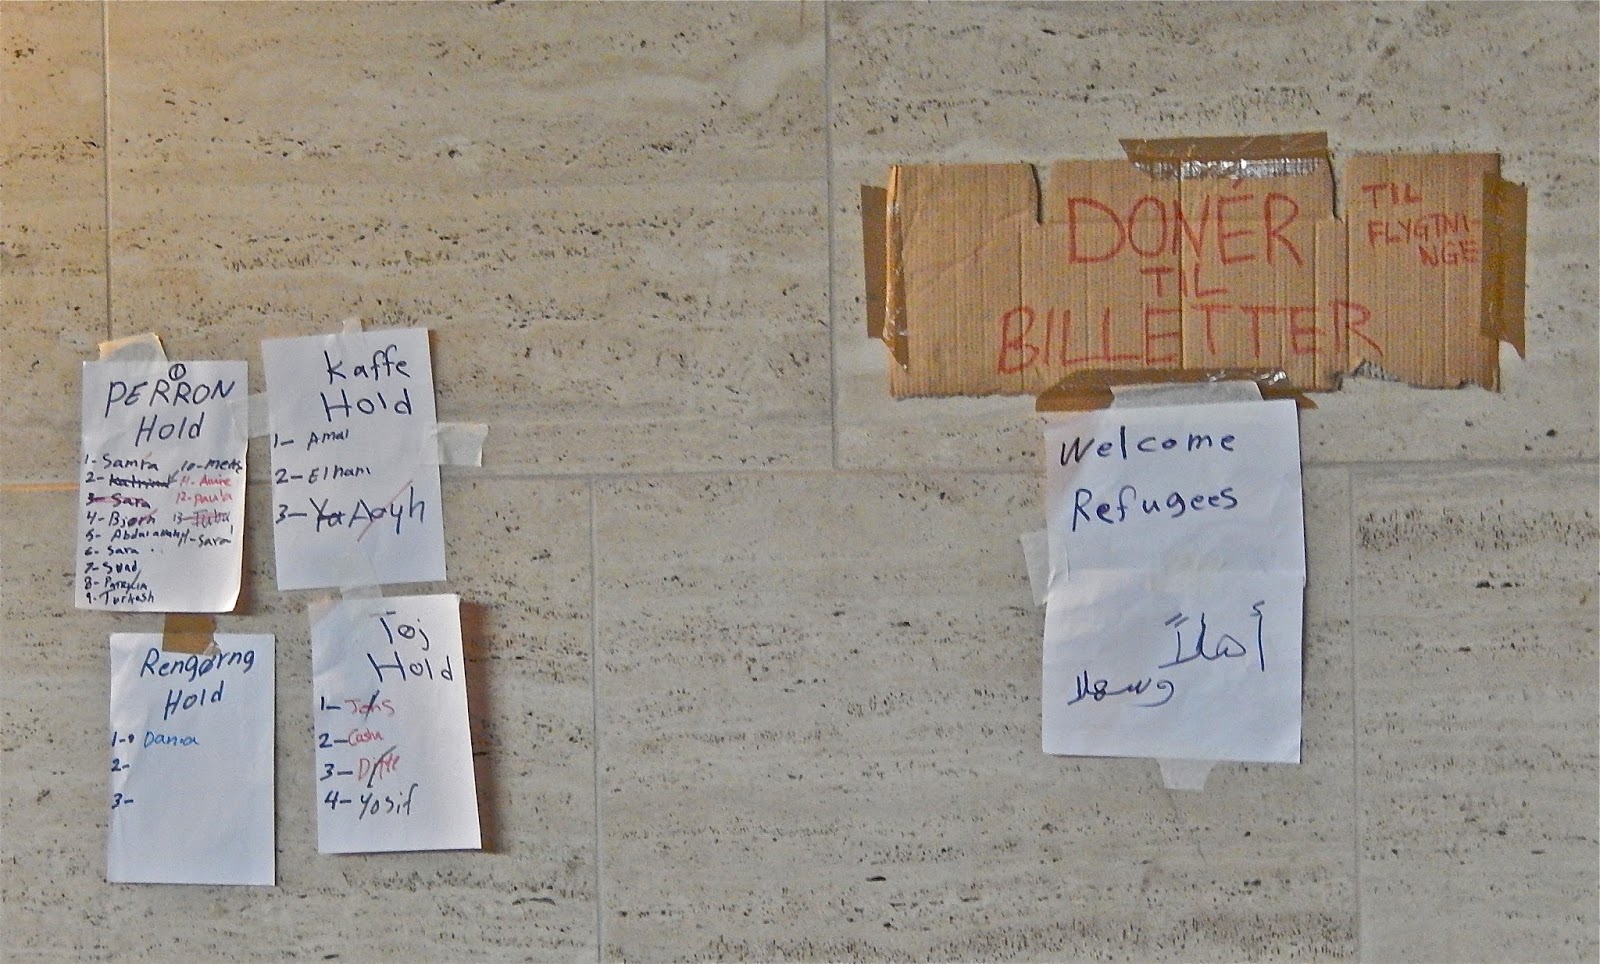 DONÉR
TIL
BILLETTER
TIL
FLYGTNI-
NGE
Welcome
Refugees
أهلاً
وسهلا
①
PERRON
Hold
1- Samra
2-
3- Sara
4- Bjørn
5-
6- Sara
7- Suad
8- Patricia
9- Turkesh
10-
11-
12- Paula
13-
11- Sara
Kaffe
Hold
1- Amal
2- Elham
3- Ya Aayh
Rengørng
Hold
1- Dania
2-
3-
Tøj
Hold
1- Jens
2-
3- Ditte
4- Yosif